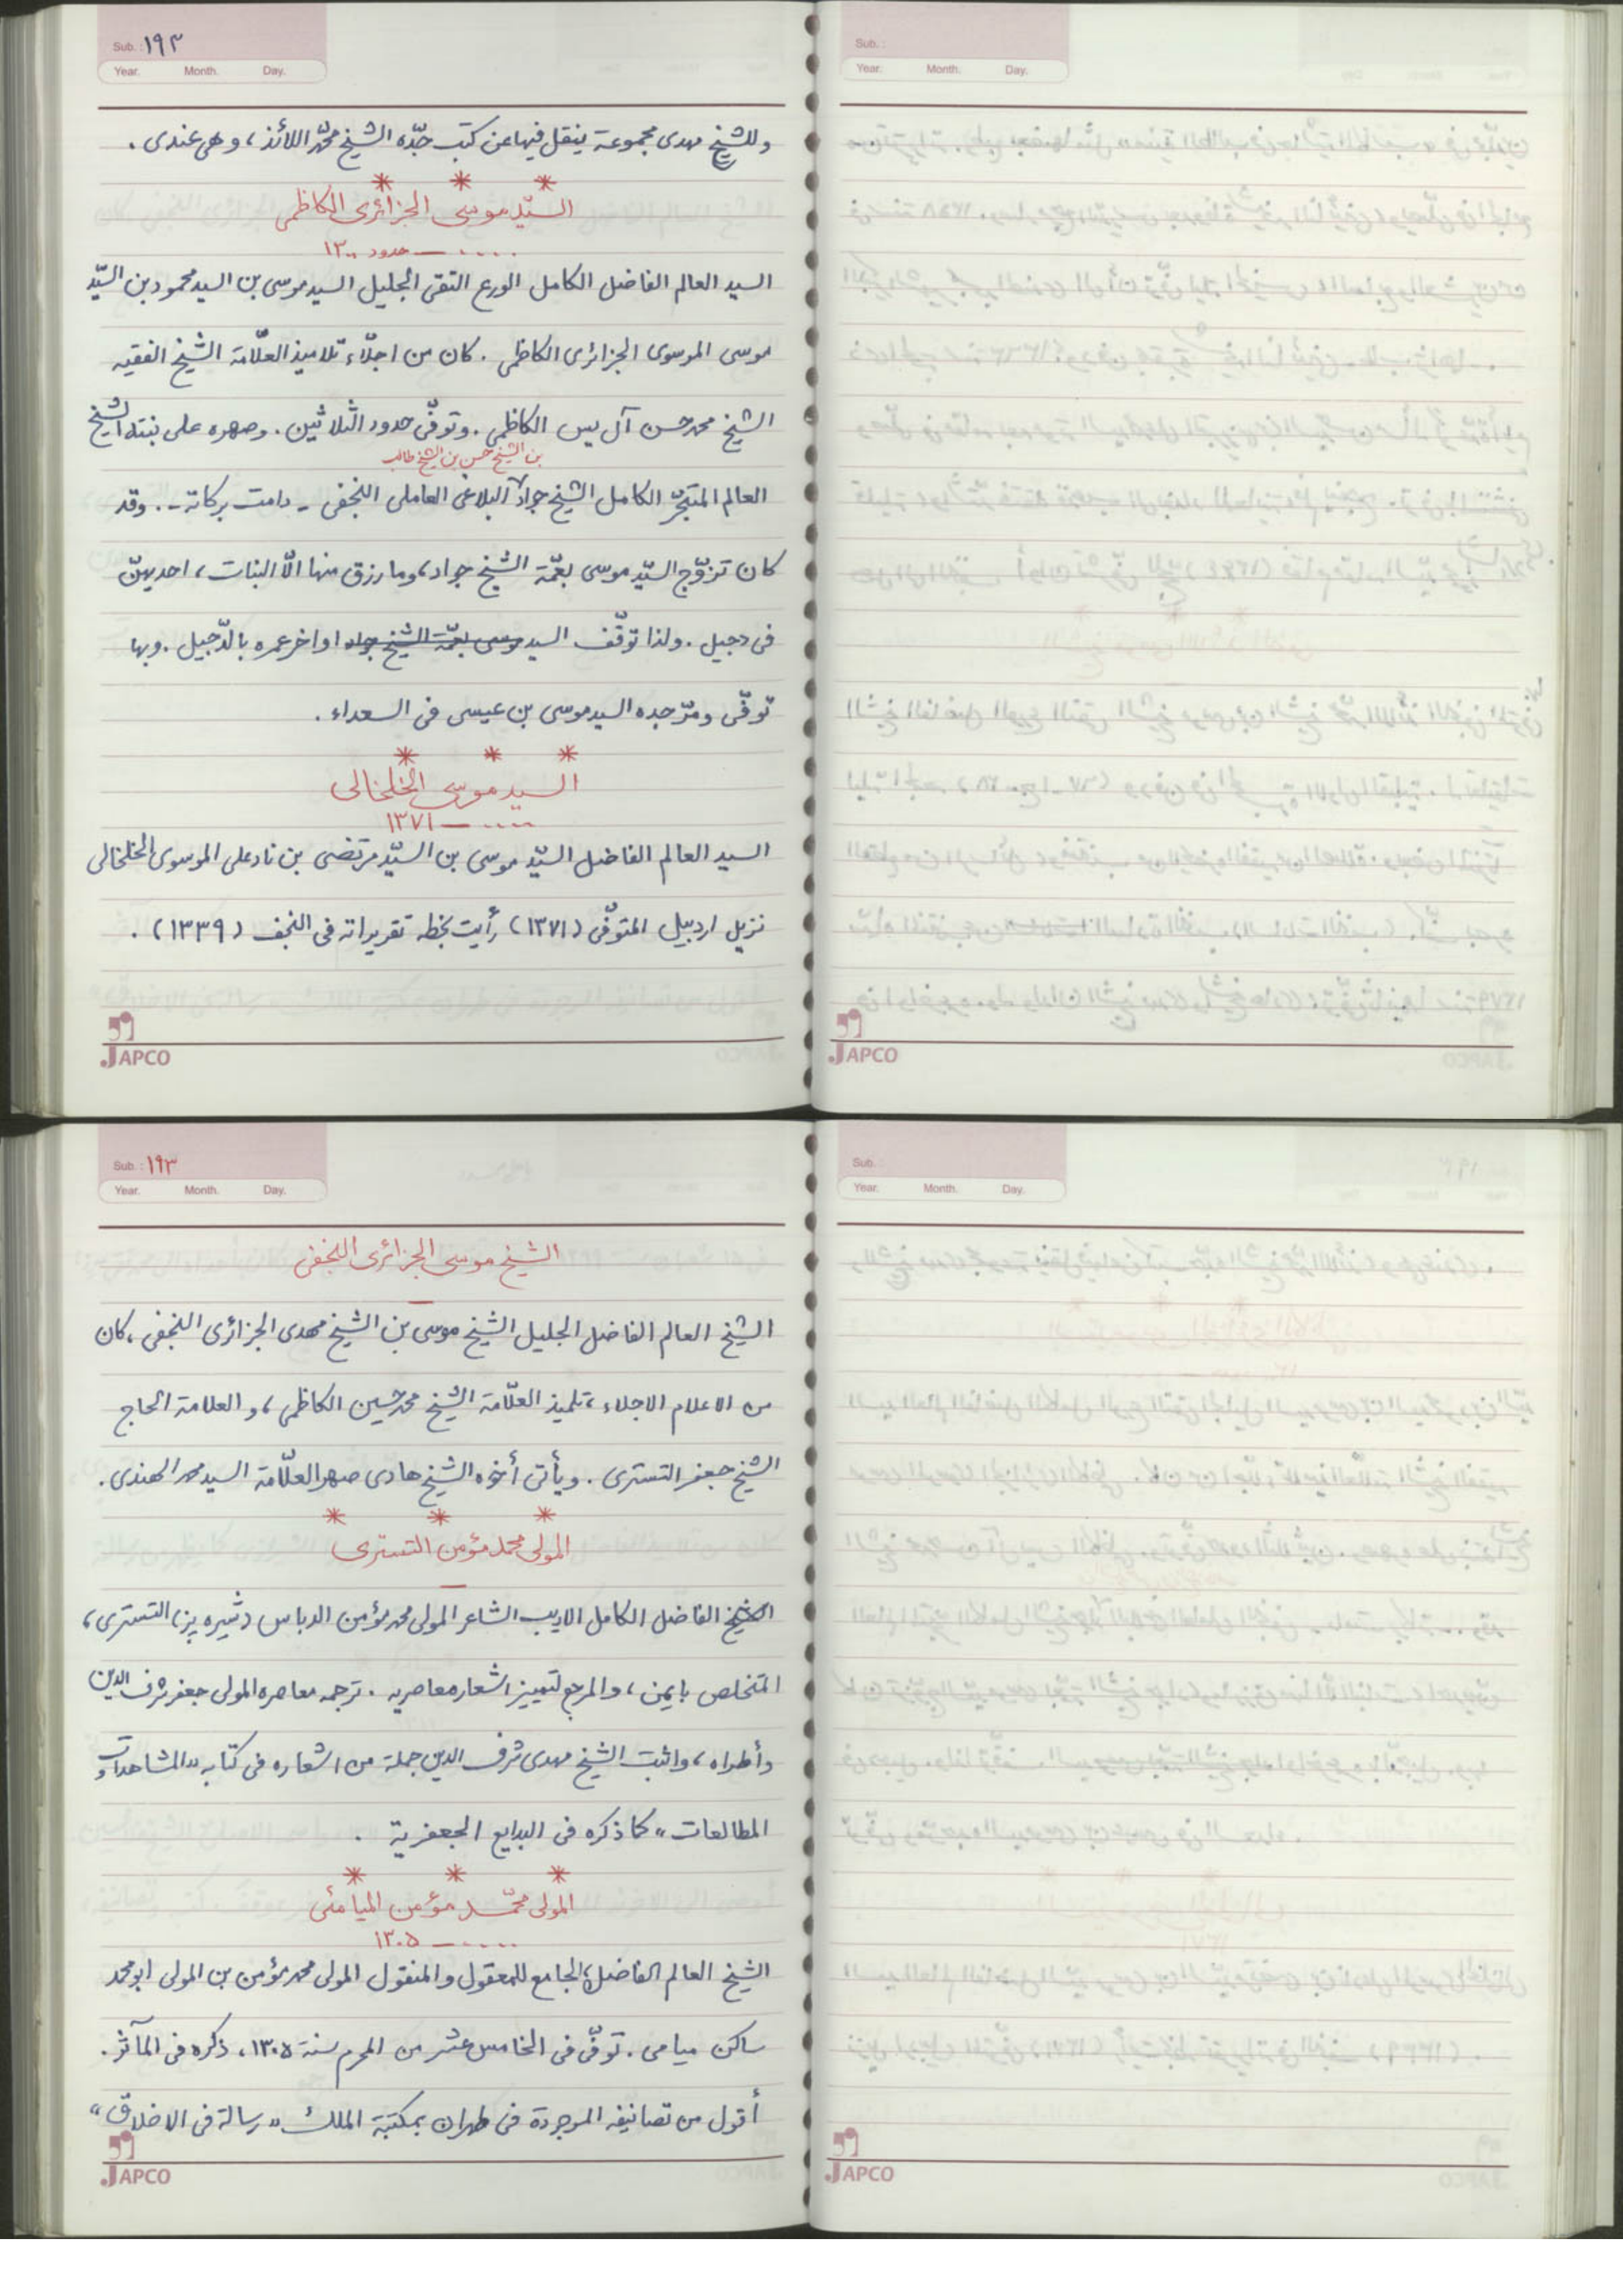 Sub. : ١٩٢
Year. Month. Day.
وللشيخ مهدى مجموعة ينقل فيها عن كتب جدّه الشيخ محمّد اللائذ، وهى عندى .
* * *
السيّد موسى الجزائرى الكاظمى
..... ـــ حدود ١٣٠٠
السيد العالم الفاضل الكامل الورع التقى الجليل السيد موسى بن السيد محمود بن السيّد
موسى الموسوى الجزائرى الكاظمى . كان من اجلّاء تلاميذ العلّامة الشيخ الفقيه
الشيخ محمد حسن آل يس الكاظمى . وتوفّى حدود الثلاثين . وصهره على بنته الشيخ
بن الشيخ حسن بن الشيخ طالب
العالم المتبحّر الكامل الشيخ جواد البلاغى العاملى النجفى ـ دامت بركاته ـ . وقد
كان تزوّج السيّد موسى بعمّة الشيخ جواد، وما رزق منها الّا البنات، احديهنّ
فى دجيل . ولذا توقّف السيد موسى بعمّة الشيخ جواد اواخر عمره بالدّجيل . وبها
توفّى ومرّ جده السيد موسى بن عيسى فى السعداء .
* * *
السيد موسى الخلخالى
..... ـــ ١٣٧١
السيد العالم الفاضل السيّد موسى بن السيّد مرتضى بن نادعلى الموسوى الخلخالى
نزيل اردبيل المتوفّى (١٣٧١) رأيت بخطه تقريراته فى النجف (١٣٣٩) .
JAPCO
Sub. :
Year. Month. Day.
JAPCO
Sub. : ١٩٣
Year. Month. Day.
الشيخ موسى الجزائرى النجفى
ـــ
الشيخ العالم الفاضل الجليل الشيخ موسى بن الشيخ مهدى الجزائرى النجفى، كان
من الاعلام الاجلاء، تلميذ العلّامة الشيخ محمد حسين الكاظمى، و العلامة الحاج
الشيخ جعفر التسترى . ويأتى أخوه الشيخ هادى صهر العلّامة السيد محمد الهندى .
* * *
المولى محمد مؤمن التسترى
ـــ
الشيخ الفاضل الكامل الاديب الشاعر المولى محمد مؤمن الدباس (شيره پز) التسترى،
المتخلص بايمن، والمرجع لتمييز اشعار معاصريه . ترجمه معاصره المولى جعفر شرف الدين
وأطراه، واثبت الشيخ مهدى شرف الدين جملة من اشعاره فى كتابه «المشاهدات و
المطالعات» كما ذكره فى البدايع الجعفرية .
* * *
المولى محمّد مؤمن الميامئى
..... ـــ ١٣٠٥
الشيخ العالم الفاضل الجامع للمعقول والمنقول المولى محمد مؤمن بن المولى ابو محمد
ساكن ميامى . توفّى فى الخامس عشر من المحرم سنة ١٣٠٥، ذكره فى المآثر .
أقول من تصانيفه الموجودة فى طهران بمكتبة الملك «رسالة فى الاخلاق»
JAPCO
Sub. :
Year. Month. Day.
JAPCO